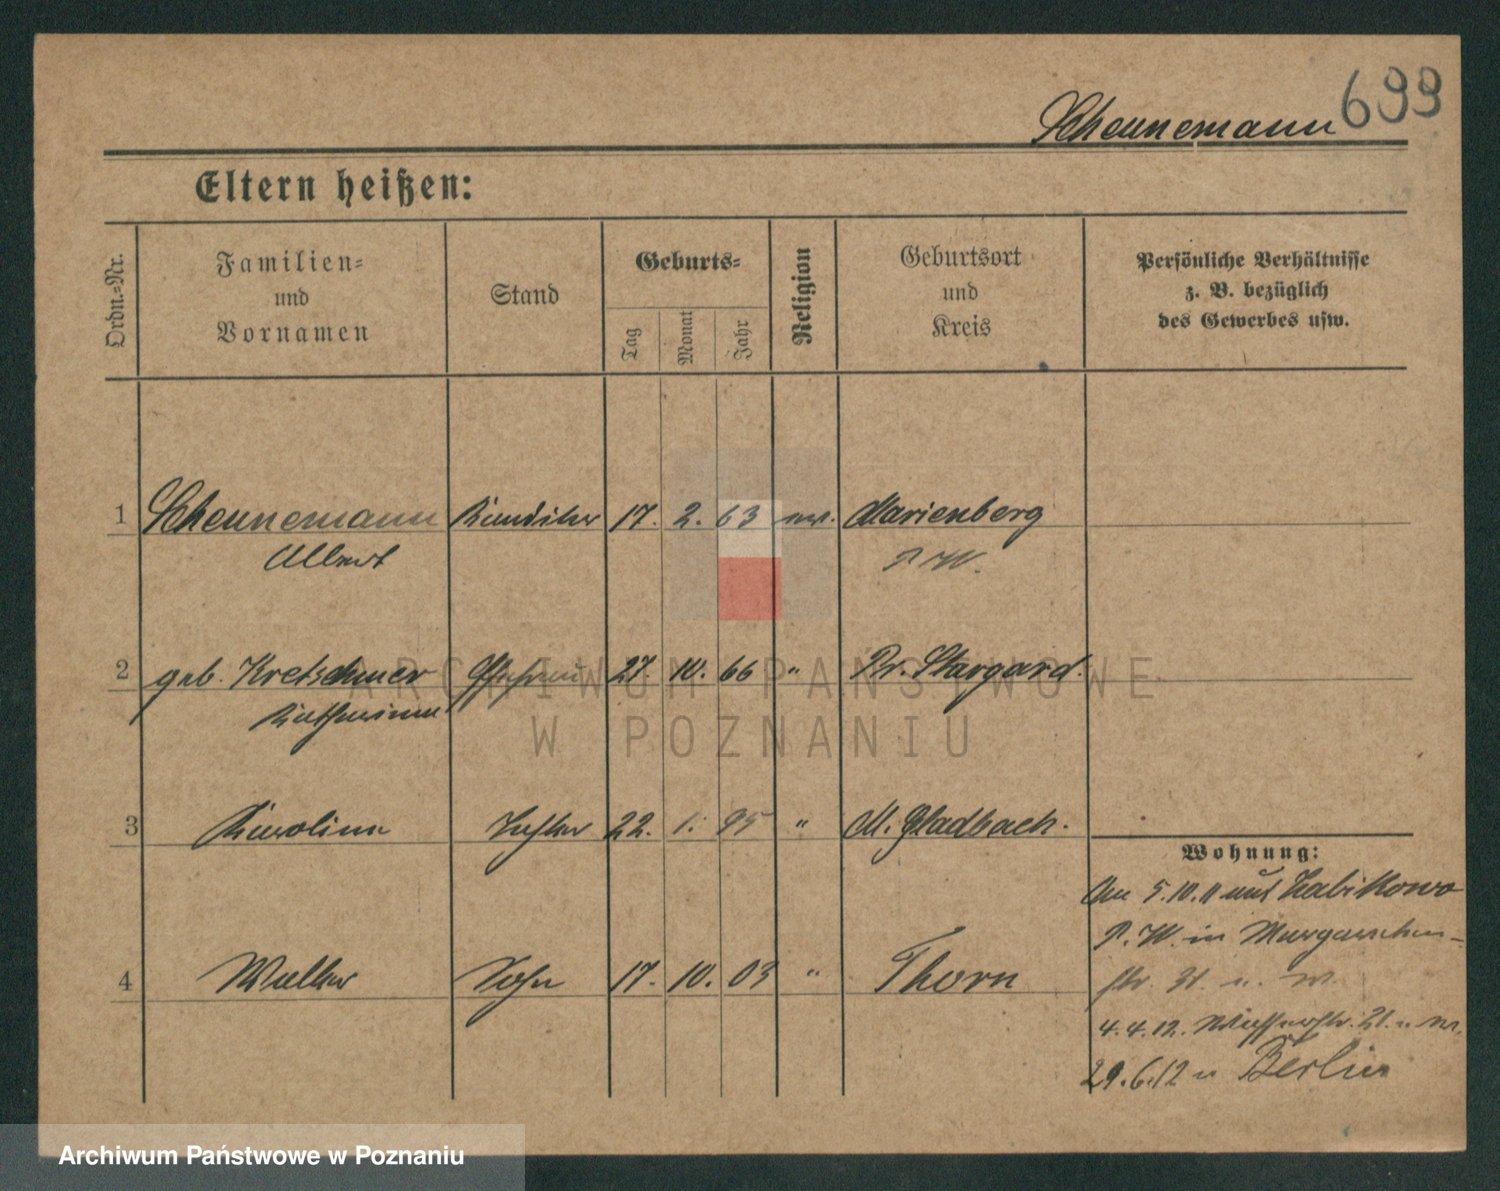 699
Scheunemann
Eltern heißen:
Ordn.-Nr.
Familien-
und
Vornamen
Stand
Geburts-
Tag
Monat
Jahr
Religion
Geburtsort
und
Kreis
Persönliche Verhältnisse
z. B. bezüglich
des Gewerbes usw.
1 Scheunemann 17. 2. 63 Marienberg
Albert P. W.
2 geb. Kretschmer Ehefrau 27. 10. 66 " Pr. Stargard.
Katharina
3 Karoline Tochter 22. 1. 95 " M. Gladbach.
4 Walter Sohn 17. 10. 03 " Thorn
Wohnung:
5.10.11 aus Zabikowo
P. W. in
4.4.12. Wasserstr. 21.
29.6.12 n Berlin
ARCHIWUM PAŃSTWOWE
W POZNANIU
Archiwum Państwowe w Poznaniu